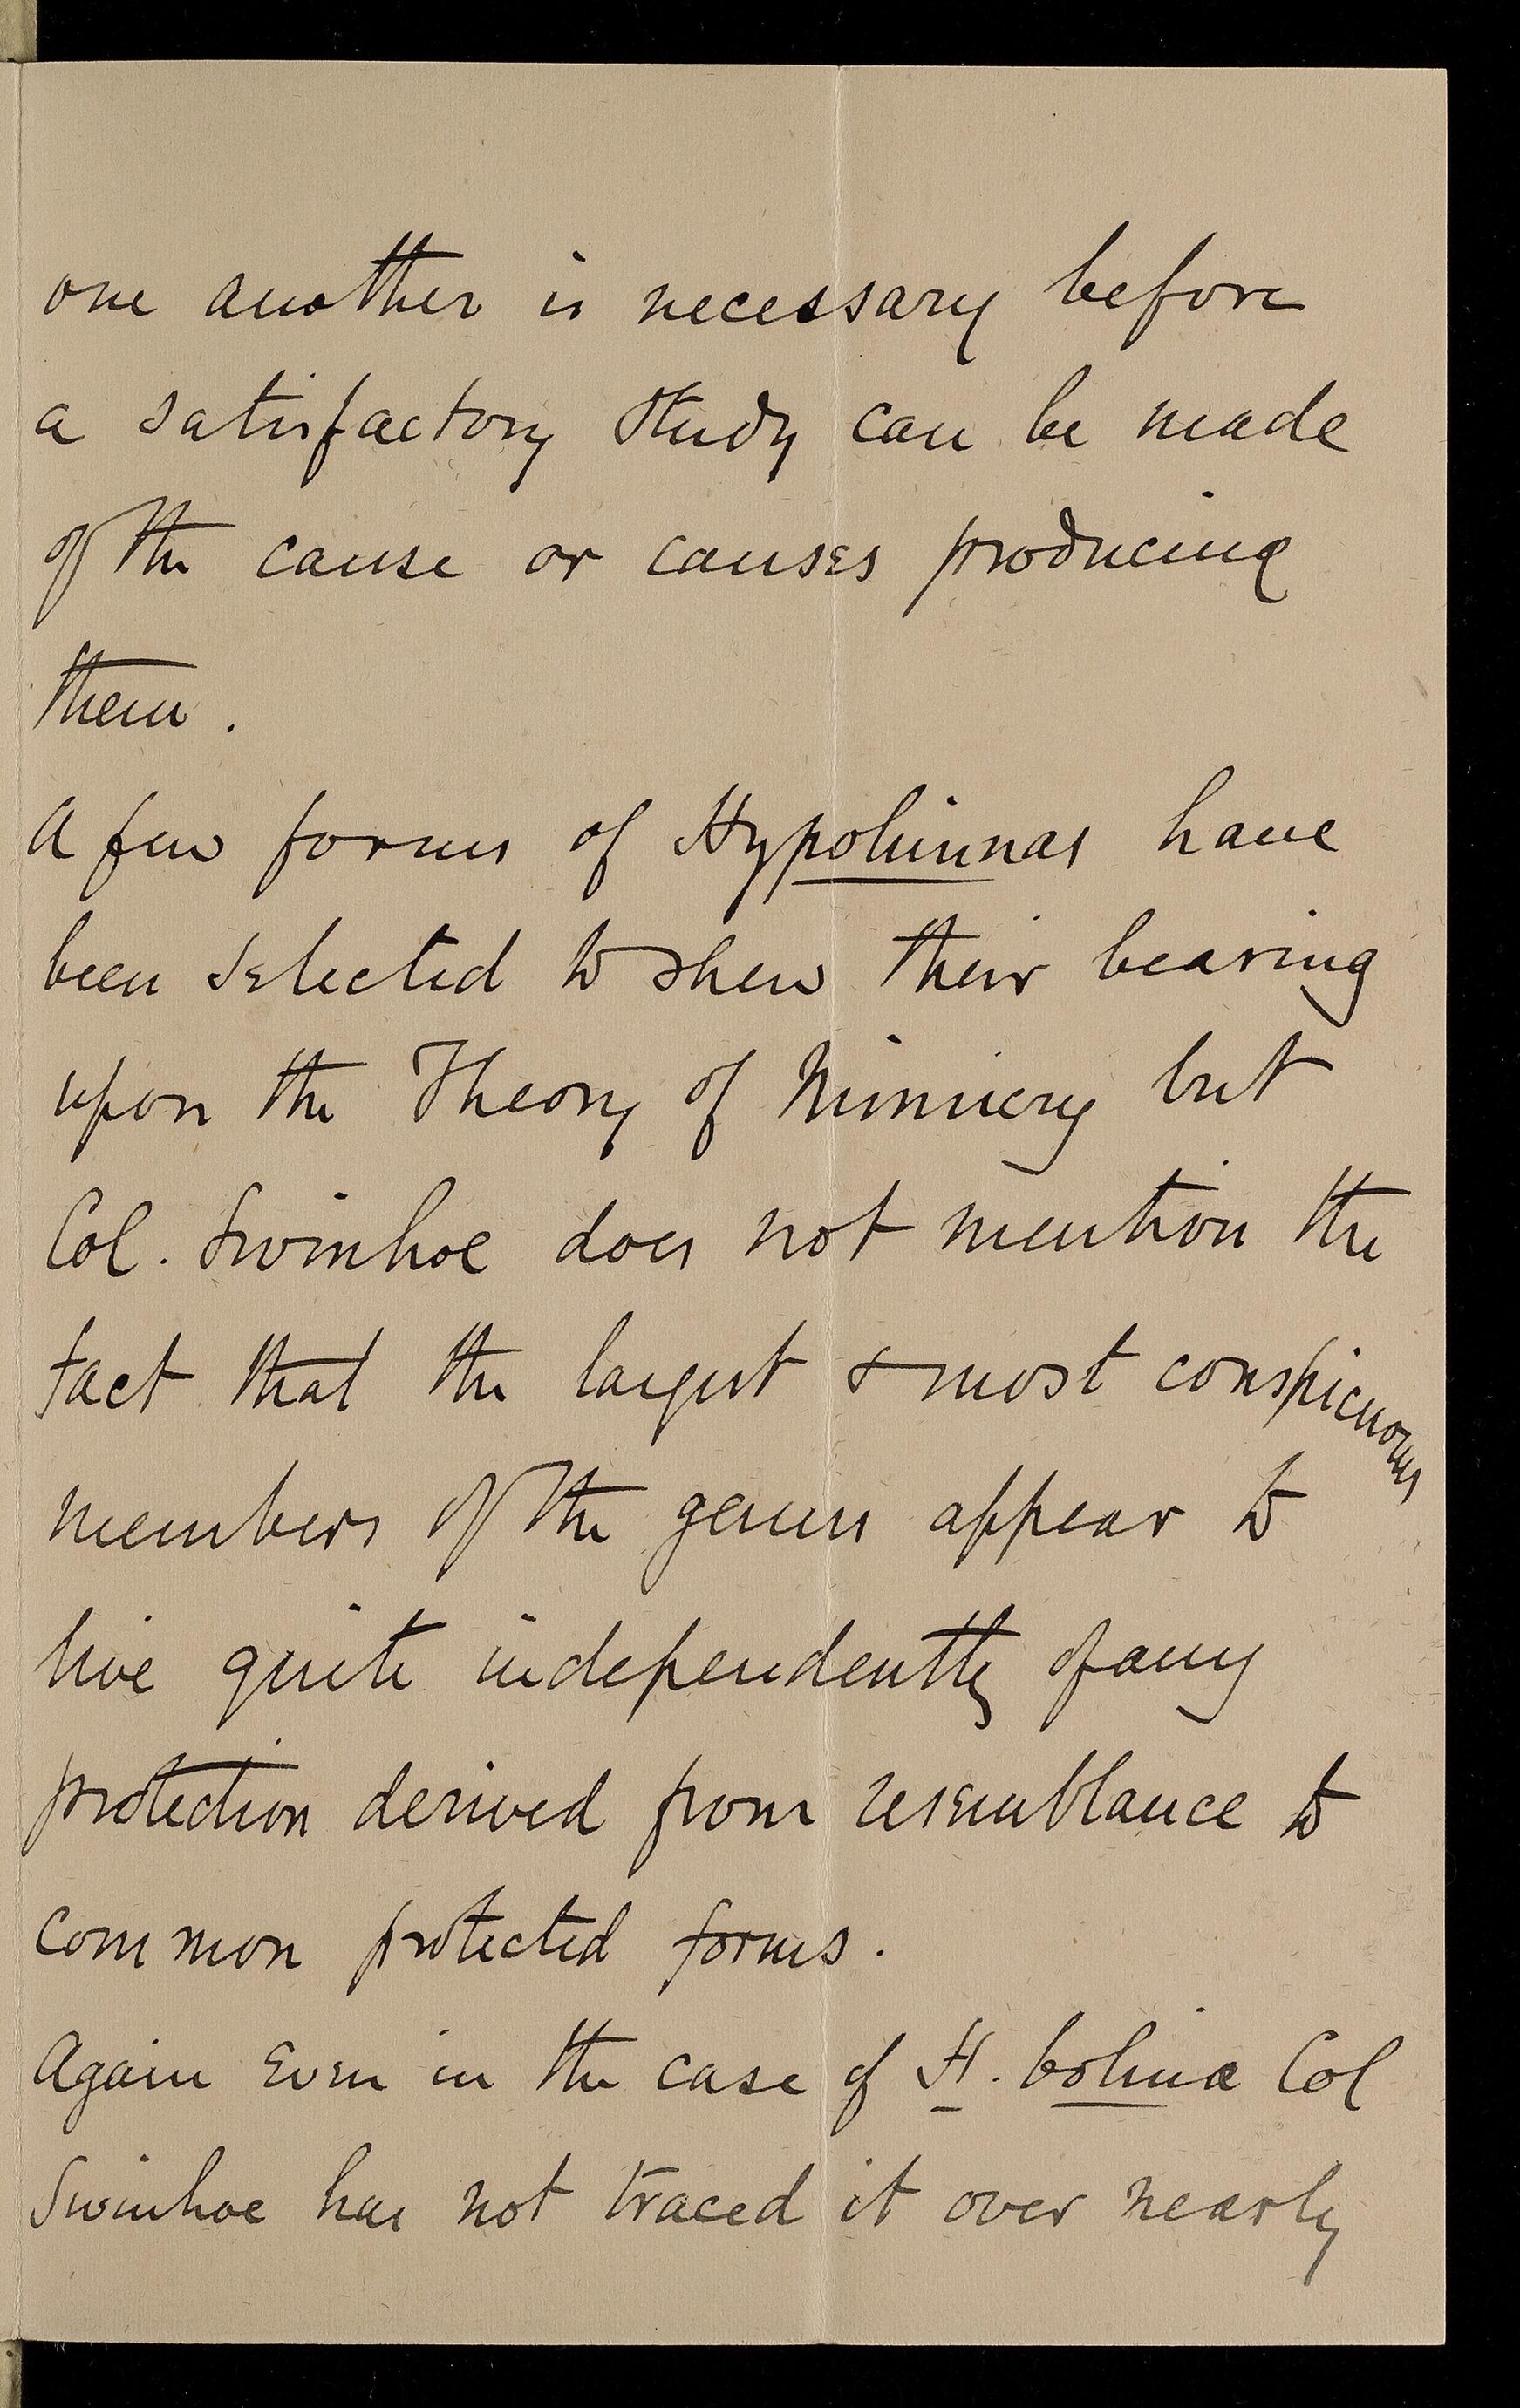 one another is necessary before
a satisfactory study can be made
of the cause or causes producing
them.
A few forms of Hypolimnas have
been selected to shew their bearing
upon the Theory of Mimicry but
Col. Swinhoe does not mention the
fact that the largest & most conspicuous
members of the genus appear to
live quite independently of any
protection derived from resemblance to
common protected forms.
Again even in the case of H. bolina Col
Swinhoe has not traced it over nearly